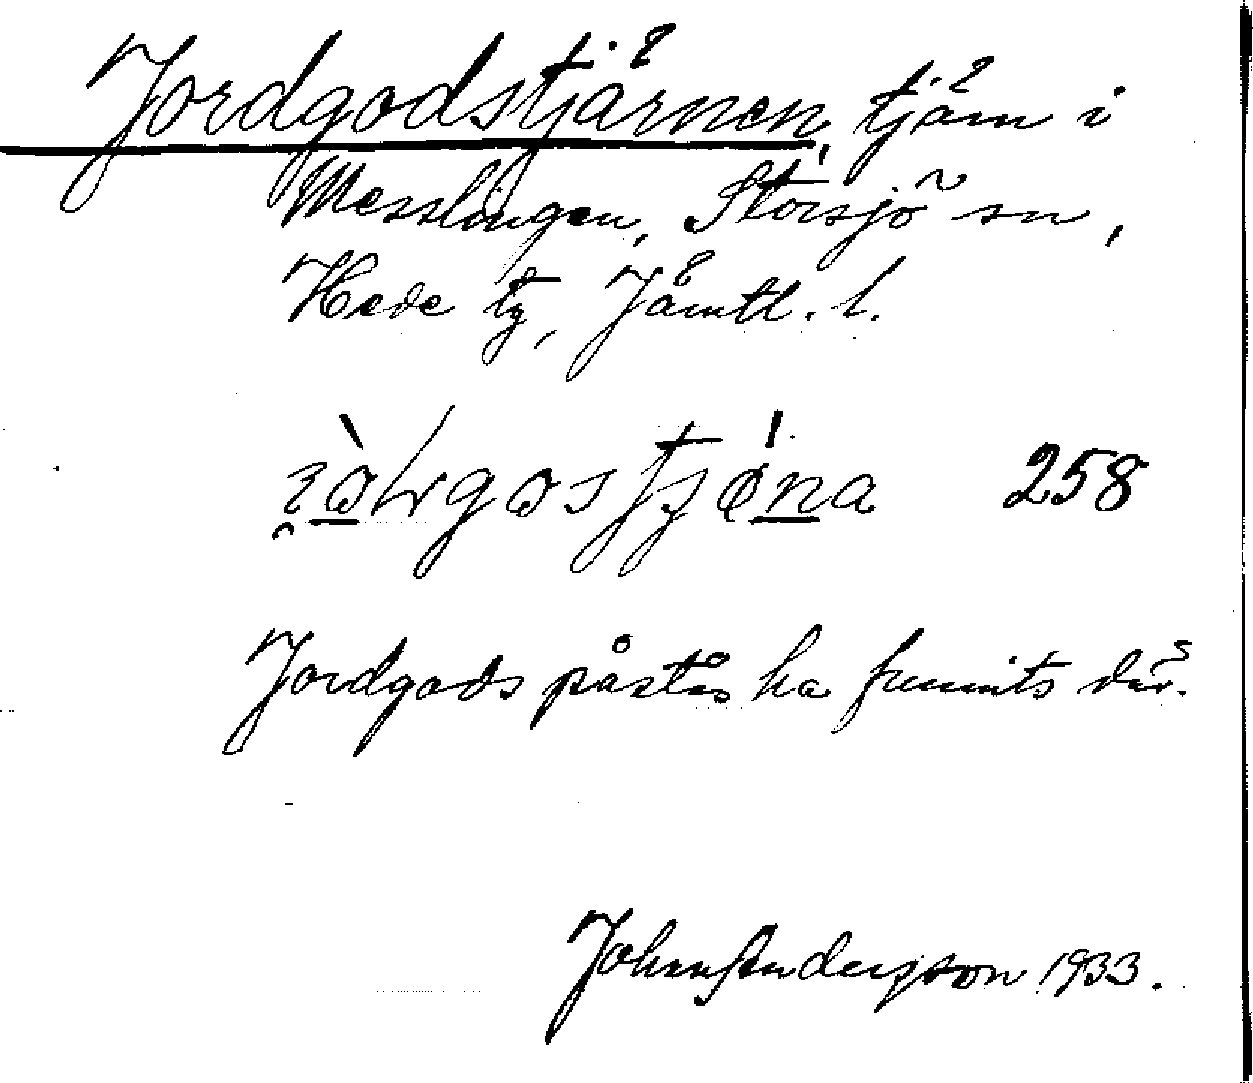 Jordgodstjärnen, tjärn i
Messlingen, Storsjö sn,
Hede tg, Jämtl. l.
258
Jordgods påstås ha funnits där.
John Andersson 1933.